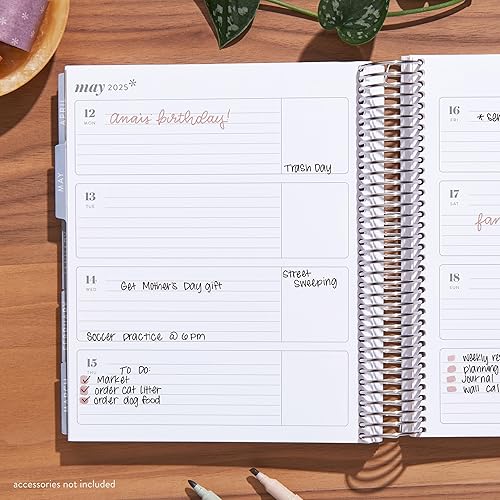 may 2025*
12
MON
Anais birthday!
Trash Day
13
TUE
14
WED
Get Mother's Day gift
Street
Sweeping
Soccer practice @ 6 pm
15
THU
To Do:
Market
order cat litter
order dog food
16
FRI
17
SAT
18
SUN
weekly re
planning
Journal
wall cal
APRIL
MAY
FEBRUARY
MARCH
accessories not included